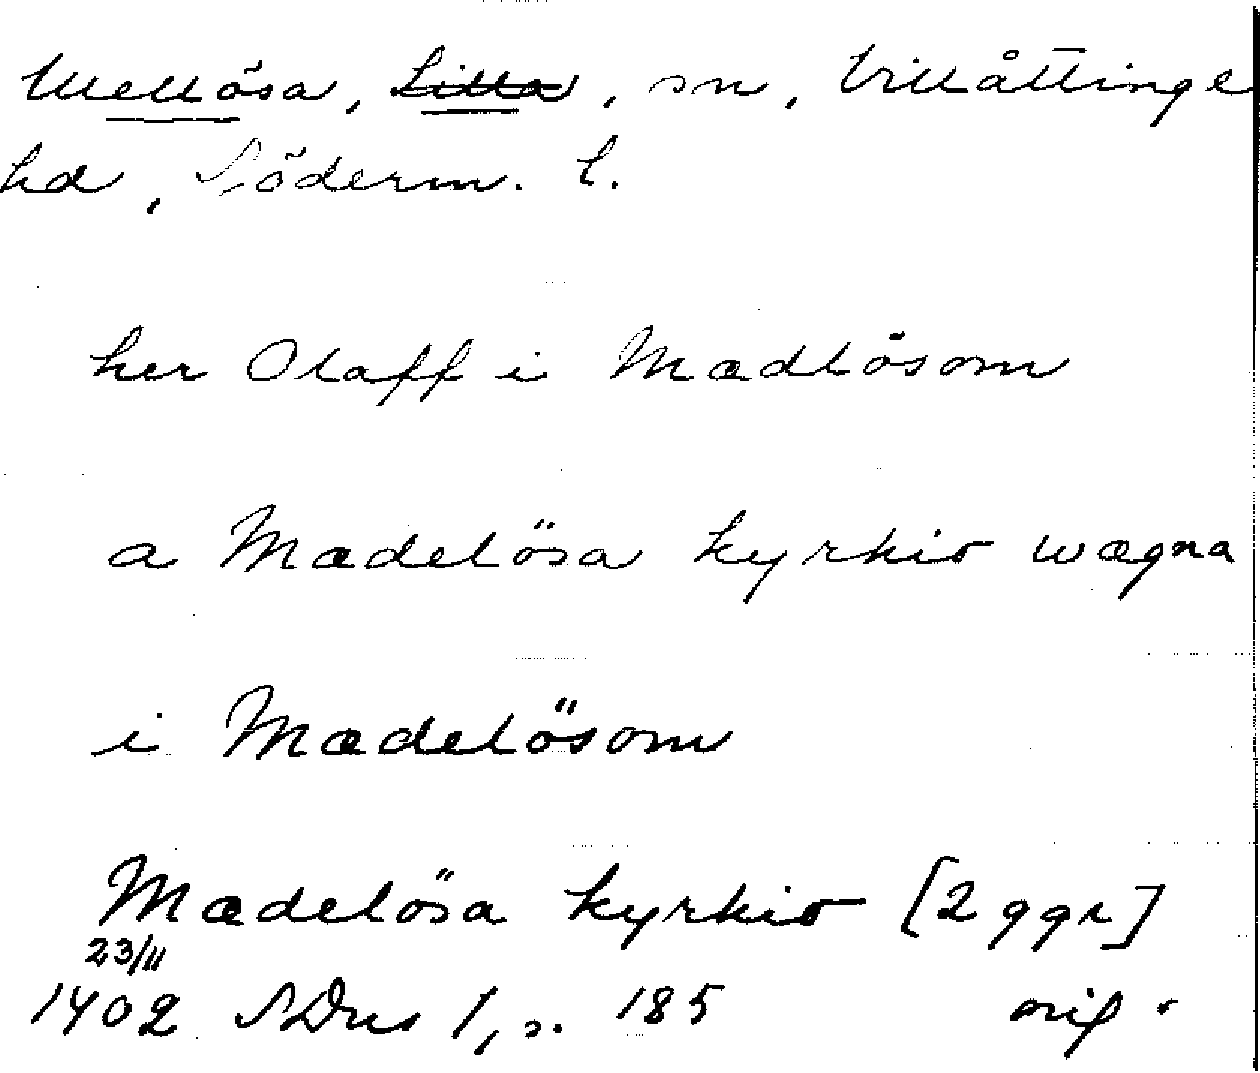 Mellösa, Lilla, sn, Villåttinge
hd, Söderm. l.
her Olaff i Mædlösom
a Mædelösa kyrkio wægna
i Mædelösom
Mædelösa kyrkio [2 ggr]
23/11
1402 SDns 1, s. 185 orig.